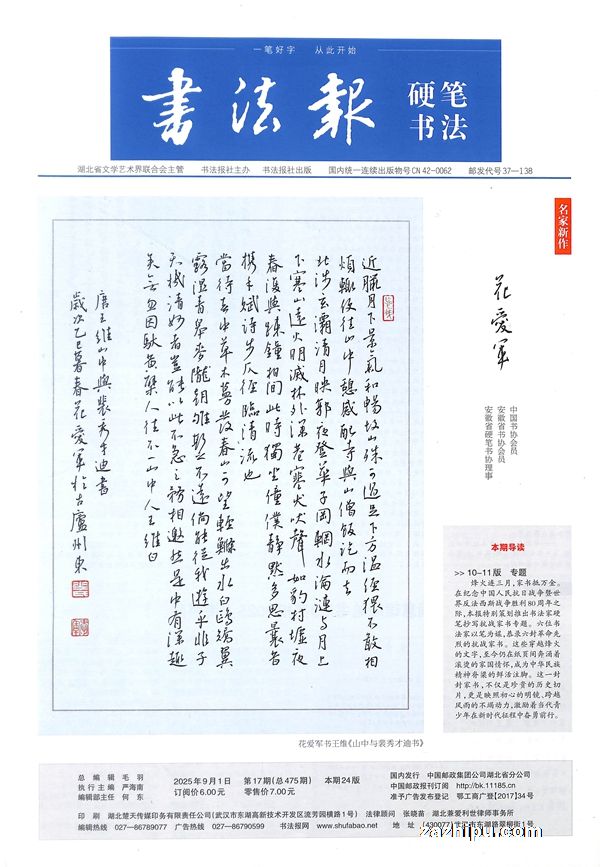 一笔好字 从此开始
书法报
硬笔
书法
湖北省文学艺术界联合会主管 书法报社主办 书法报社出版 国内统一连续出版物号CN 42-0062 邮发代号37—138
名家新作
花愛軍
中国书协会员
安徽省书协会员
安徽省硬笔书协理事
近臘月下景氣和暢故山殊可過足下方溫經猥不敢相
煩輒便往山中憩感配寺與山僧飯訖而去
北涉玄灞清月映郭夜登華子岡輞水淪漣与月上
下寒山遠火明滅林外深巷寒犬吠聲如豹村墟夜
春復與疎鐘相間此時獨坐僮僕靜默多思曩昔
攜手賦詩步仄徑臨清流也
當待春中草木蔓發春山可望輕鰷出水白鷗矯翼
露濕青皋麥隴朝雊斯之不遠倘能從我遊乎非子
天機清妙者豈能以此不急之務相邀然是中有深趣
矣無忽因馱黃檗人往不一山中人王維白
唐王維山中與裴秀才迪書
歲次乙巳暮春花愛軍於古廬州東
本期导读
>> 10-11版 专题
烽火连三月,家书抵万金。
在纪念中国人民抗日战争暨世
界反法西斯战争胜利80周年之
际,本报特别策划推出书法家硬
笔抄写抗战家书专题。六位书
法家以笔为媒,恭录六封革命先
烈的抗战家书。这些穿越烽火
的文字,至今仍在纸页间奔涌着
滚烫的家国情怀,成为中华民族
精神脊梁的鲜活注脚。这一封
封家书,不仅是珍贵的历史切
片,更是映照初心的明镜、跨越
风雨的不竭动力,激励着当代青
少年在新时代征程中奋勇前行。
花爱军书王维《山中与裴秀才迪书》
总编辑 毛羽
执行主编 严海南
编辑部主任 何东
2025年9月1日 第17期(总475期) 本期24版
订阅价6.00元 零售价7.00元
国内发行 中国邮政集团公司湖北省分公司
中国邮政报刊订阅 http://bk.11185.cn
准予广告发布登记 鄂工商广登[2017]34号
印刷 湖北楚天传媒印务有限责任公司(武汉市东湖高新技术开发区流芳园横路1号) 法律顾问 张晓苗 湖北兼爱利世律师事务所
编辑热线 027—86789077 广告热线 027—86790599 书法报网 www.shufabao.net 地址 (430077)武汉市东湖路翠柳街1号
zazhipu.com